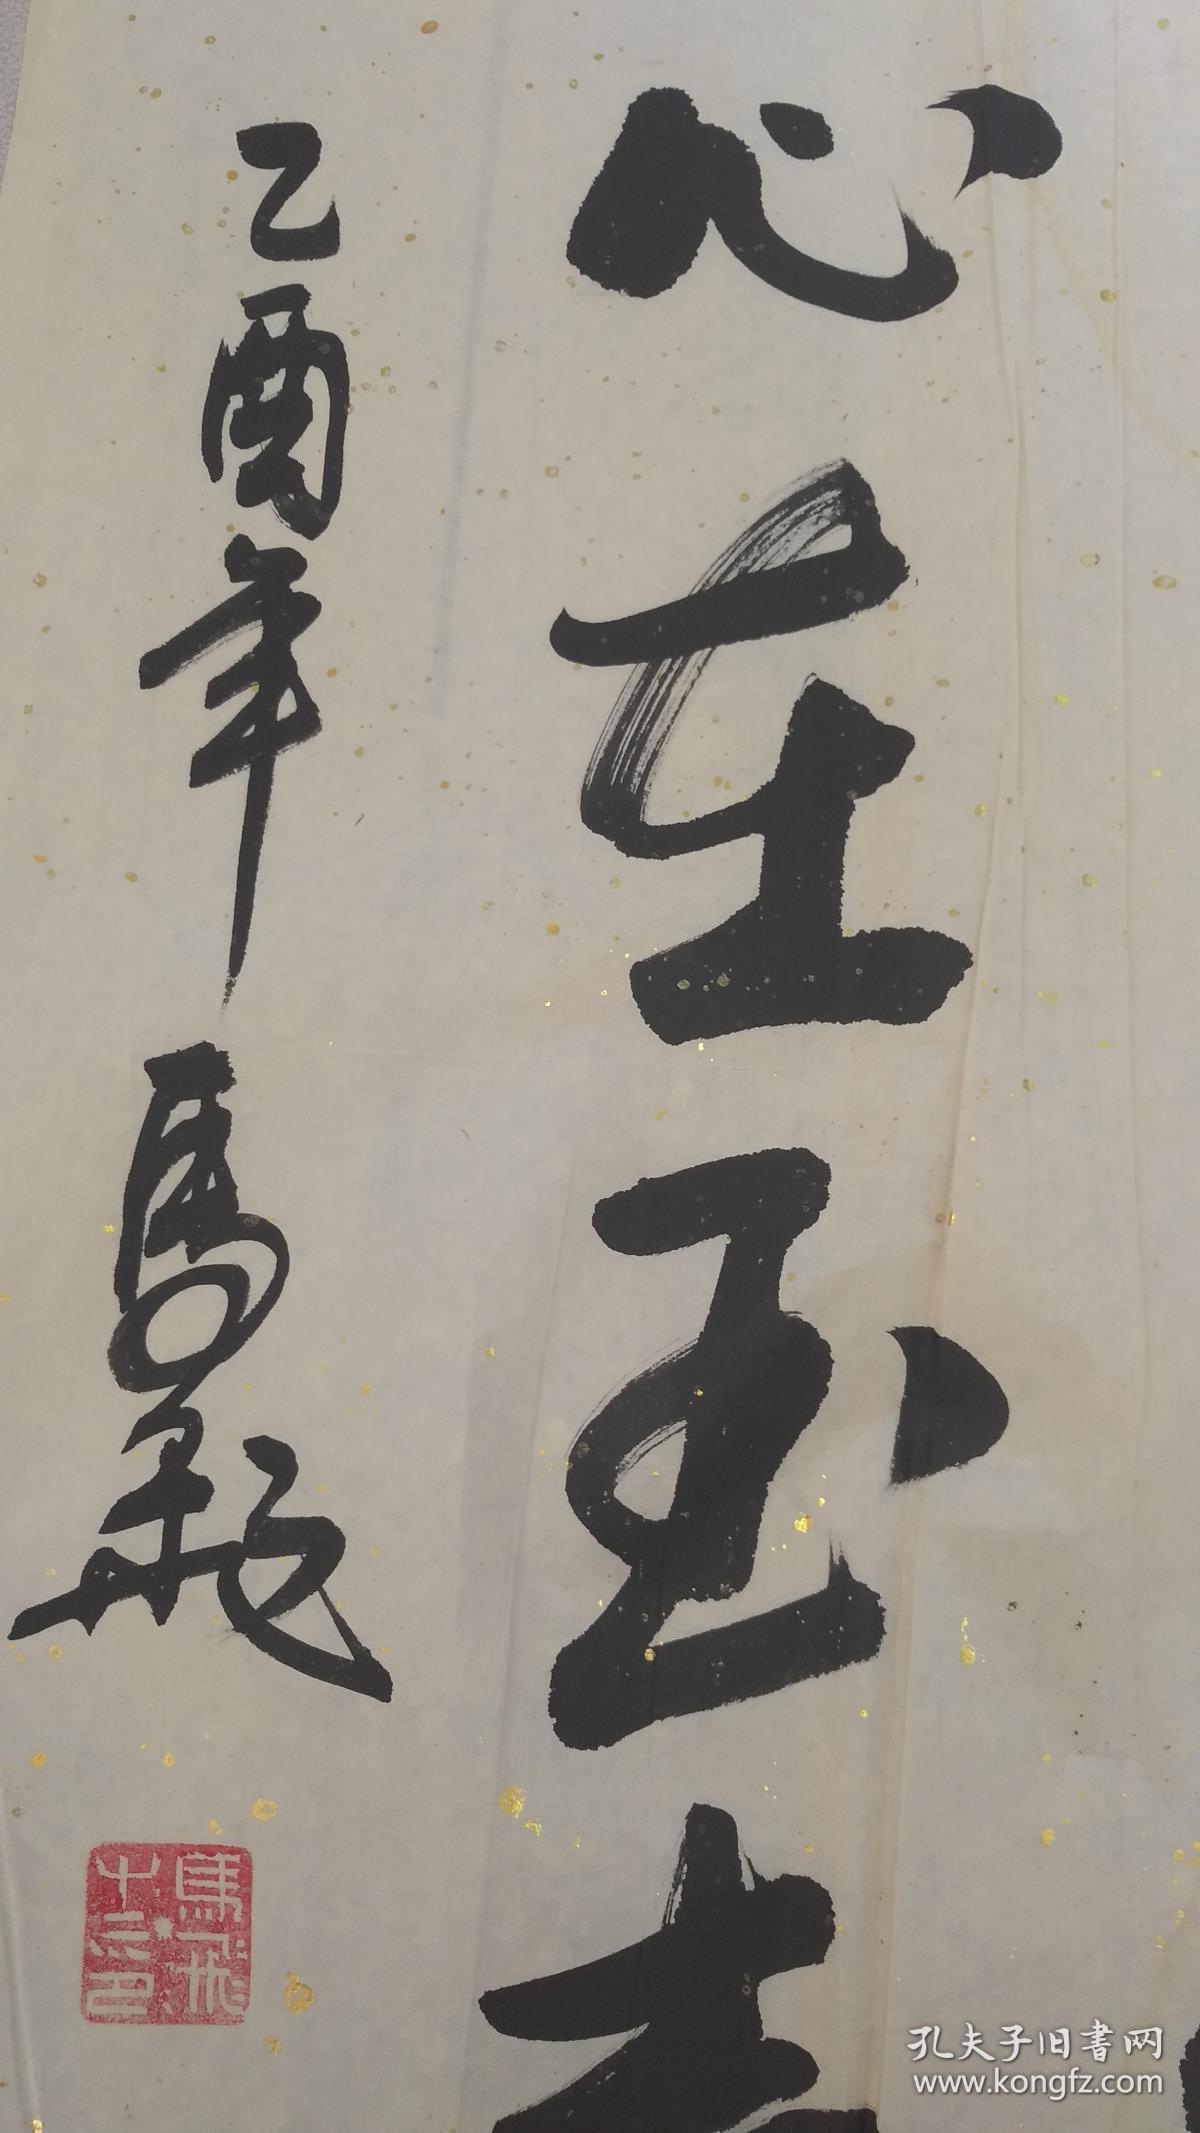 心在玉壺
乙酉年 馬飛
馬飛
十二印
孔夫子旧書网
www.kongfz.com